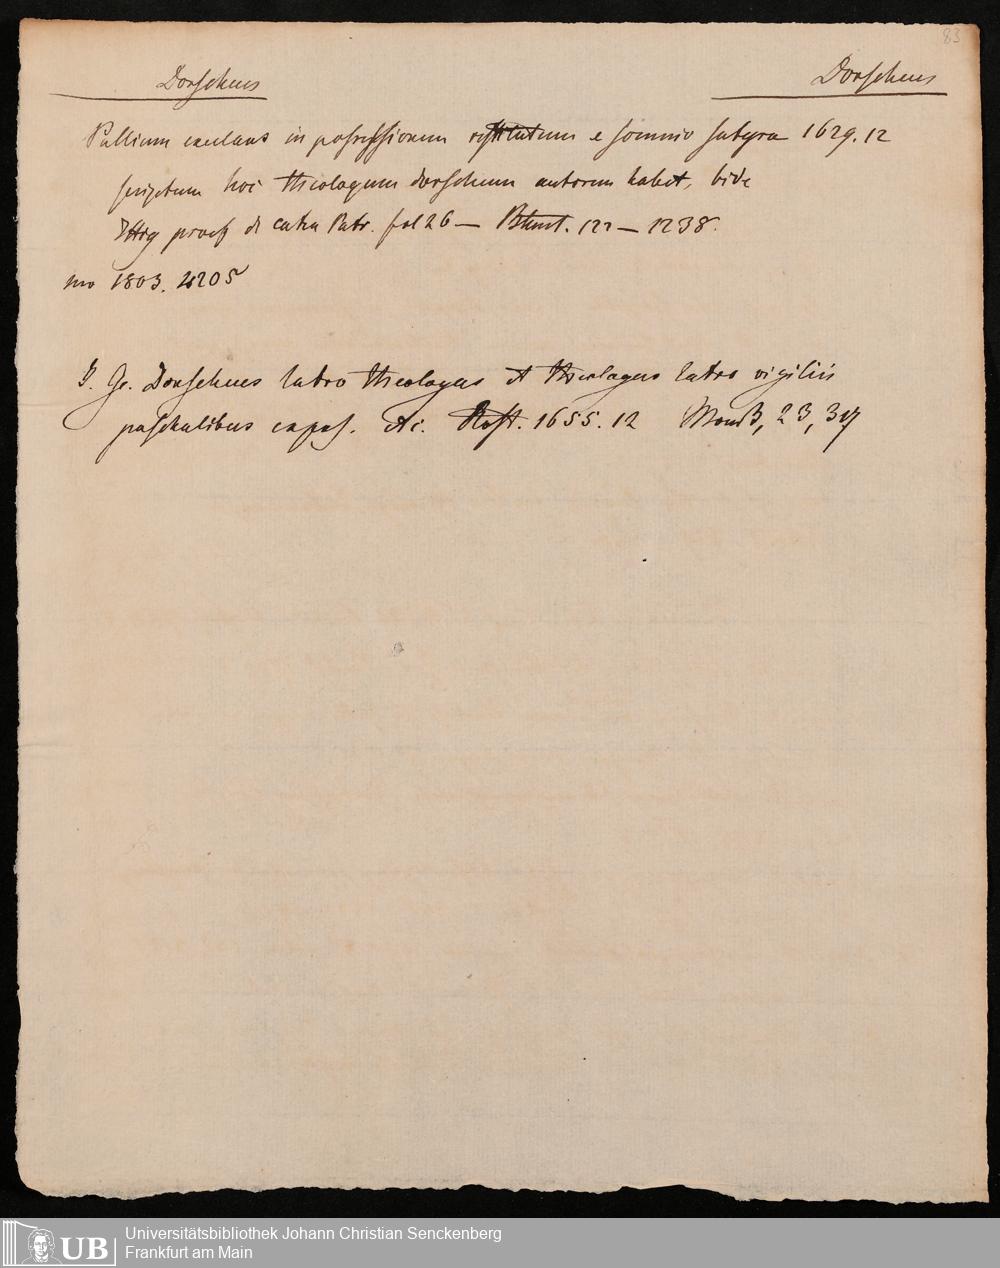 83
Dorscheus Dorscheus
Pallium exulans in possessionem restitutum e somnio satyra 1629. 12
scriptum hoc theologum dorscheum autorem habet, vide
Ittig praef de caten Patr. fol 26 — Blunt. 122 — 1238.
mo 1803. 4205
J. Ge. Dorscheus latro theologus et theologus latro vigiliis
paschalibus expos. etc. Rost. 1655. 12 23, 34
Universitätsbibliothek Johann Christian Senckenberg
Frankfurt am Main
UB